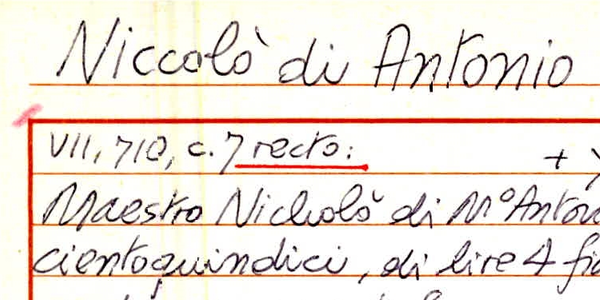 Niccolò di Antonio
VII, 710, c. 7 recto: +
Maestro Nicholò di Mº Anton
cientoquindici, di lire 4 fio